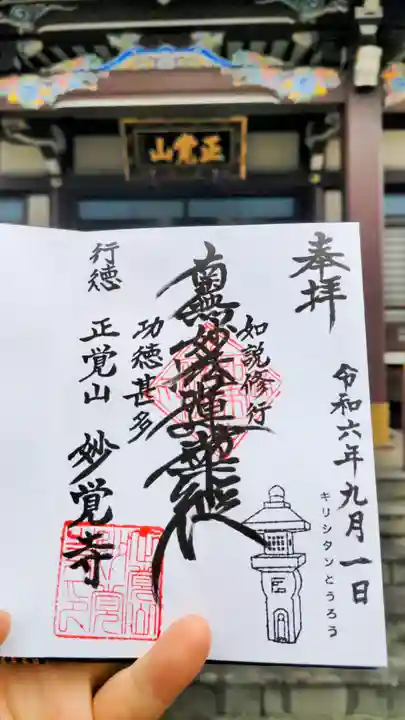 山覚正
奉拝
令和六年九月一日
キリシタンとうろう
如説修行
南無妙法蓮華経
功徳甚多
行徳
正覚山 妙覚寺